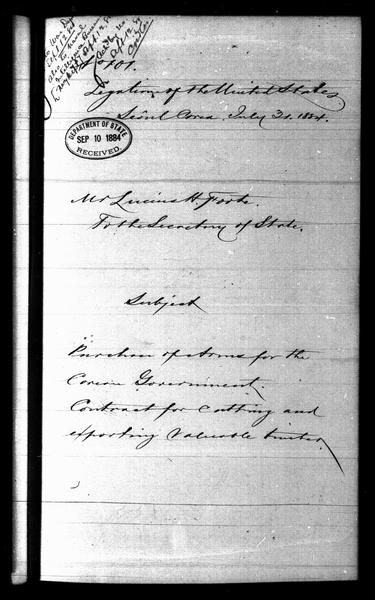 Legation of the United States,
Séoul Corea, July 31. 1884.
DEPARTMENT OF STATE
SEP 10 1884
RECEIVED.
Mr Lucius H. Foote.
To the Secretary of State.
Subject
Purchase of Arms for the
Corean Government.
Contract for cutting and
exporting valuable timber.